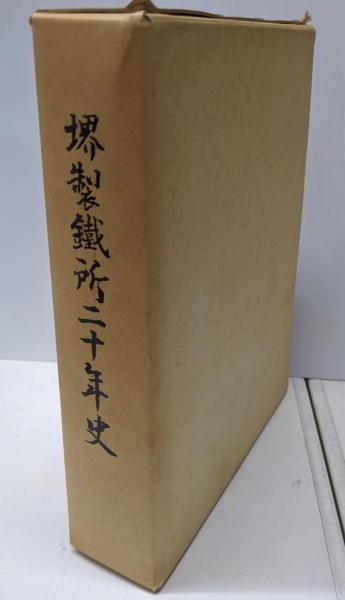 堺製鐵所二十年史